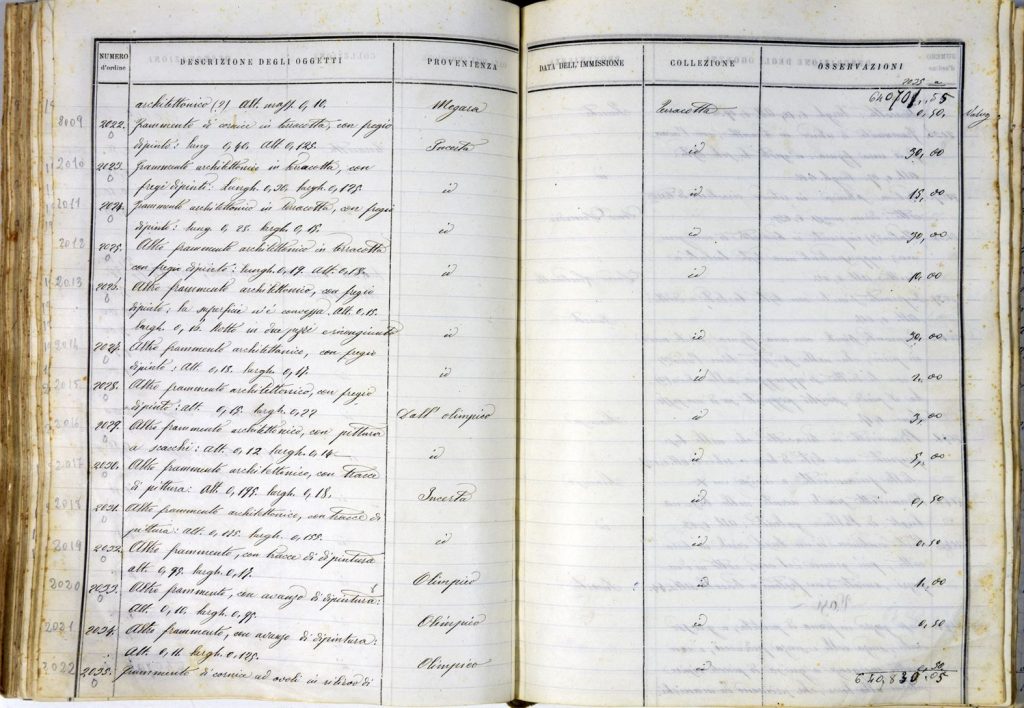 NUMERO d'ordine
DESCRIZIONE DEGLI OGGETTI
PROVENIENZA
DATA DELL'IMMISSIONE
COLLEZIONE
OSSERVAZIONI
640701,,55
architettonico (?) Alt. 0, 10. Megara Terracotta 0,50,
2009 2022. Frammento di cornice in terracotta, con fregio
dipinto: lung. 0, 40. Alt. 0, 125. Incerta id 30,00
2010 2023. Frammento architettonico in terracotta, con
fregi dipinti: Lungh. 0, 30. largh. 0, 125. id id 15,00
2011 2024. Frammento architettonico in terracotta, con fregio
dipinto: lung. 0, 25. largh. 0, 15. id id 30,00
2012 2025. Altro frammento architettonico in terracotta
con fregio dipinto: lungh. 0, 19. Alt. 0, 18. id id 10,00
2013 2026. Altro frammento architettonico, con fregio
dipinto; la superficie n'è convessa. Alt. 0, 15.
largh. 0, 10. Rotto in due pezzi e ricongiunto id id 30,00
2014 2027. Altro frammento architettonico, con fregio
dipinto: Alt. 0, 18. largh. 0, 17. id id 2,00
2015 2028. Altro frammento architettonico, con fregio
dipinto: alt. 0, 15. largh. 0, 22 Dall' olimpico id 3,00
2016 2029. Altro frammento architettonico, con pittura
a scacchi: Alt. 0, 12 largh. 0, 14 id id 5,00
2017 2030. Altro frammento architettonico, con tracce
di pittura: Alt. 0, 195. largh. 0, 18. Incerta id 0,50
2018 2031. Altro frammento architettonico, con tracce di
pittura: alt. 0, 115. largh. 0, 155. id id 0,50
2019 2032. Altro frammento, con tracce di dipintura
alt. 0, 95. largh. 0, 17. Olimpico id 1,00
2020 2033. Altro frammento, con avanzo di dipintura:
Alt. 0, 10, largh. 0, 95. Olimpico id 0,50
2021 2034. Altro frammento, con avanzo di dipintura:
Alt. 0, 11. largh. 0, 125. Olimpico id
2022 2035. Frammento di cornice ad ovoli in rilievo di
640,830,05